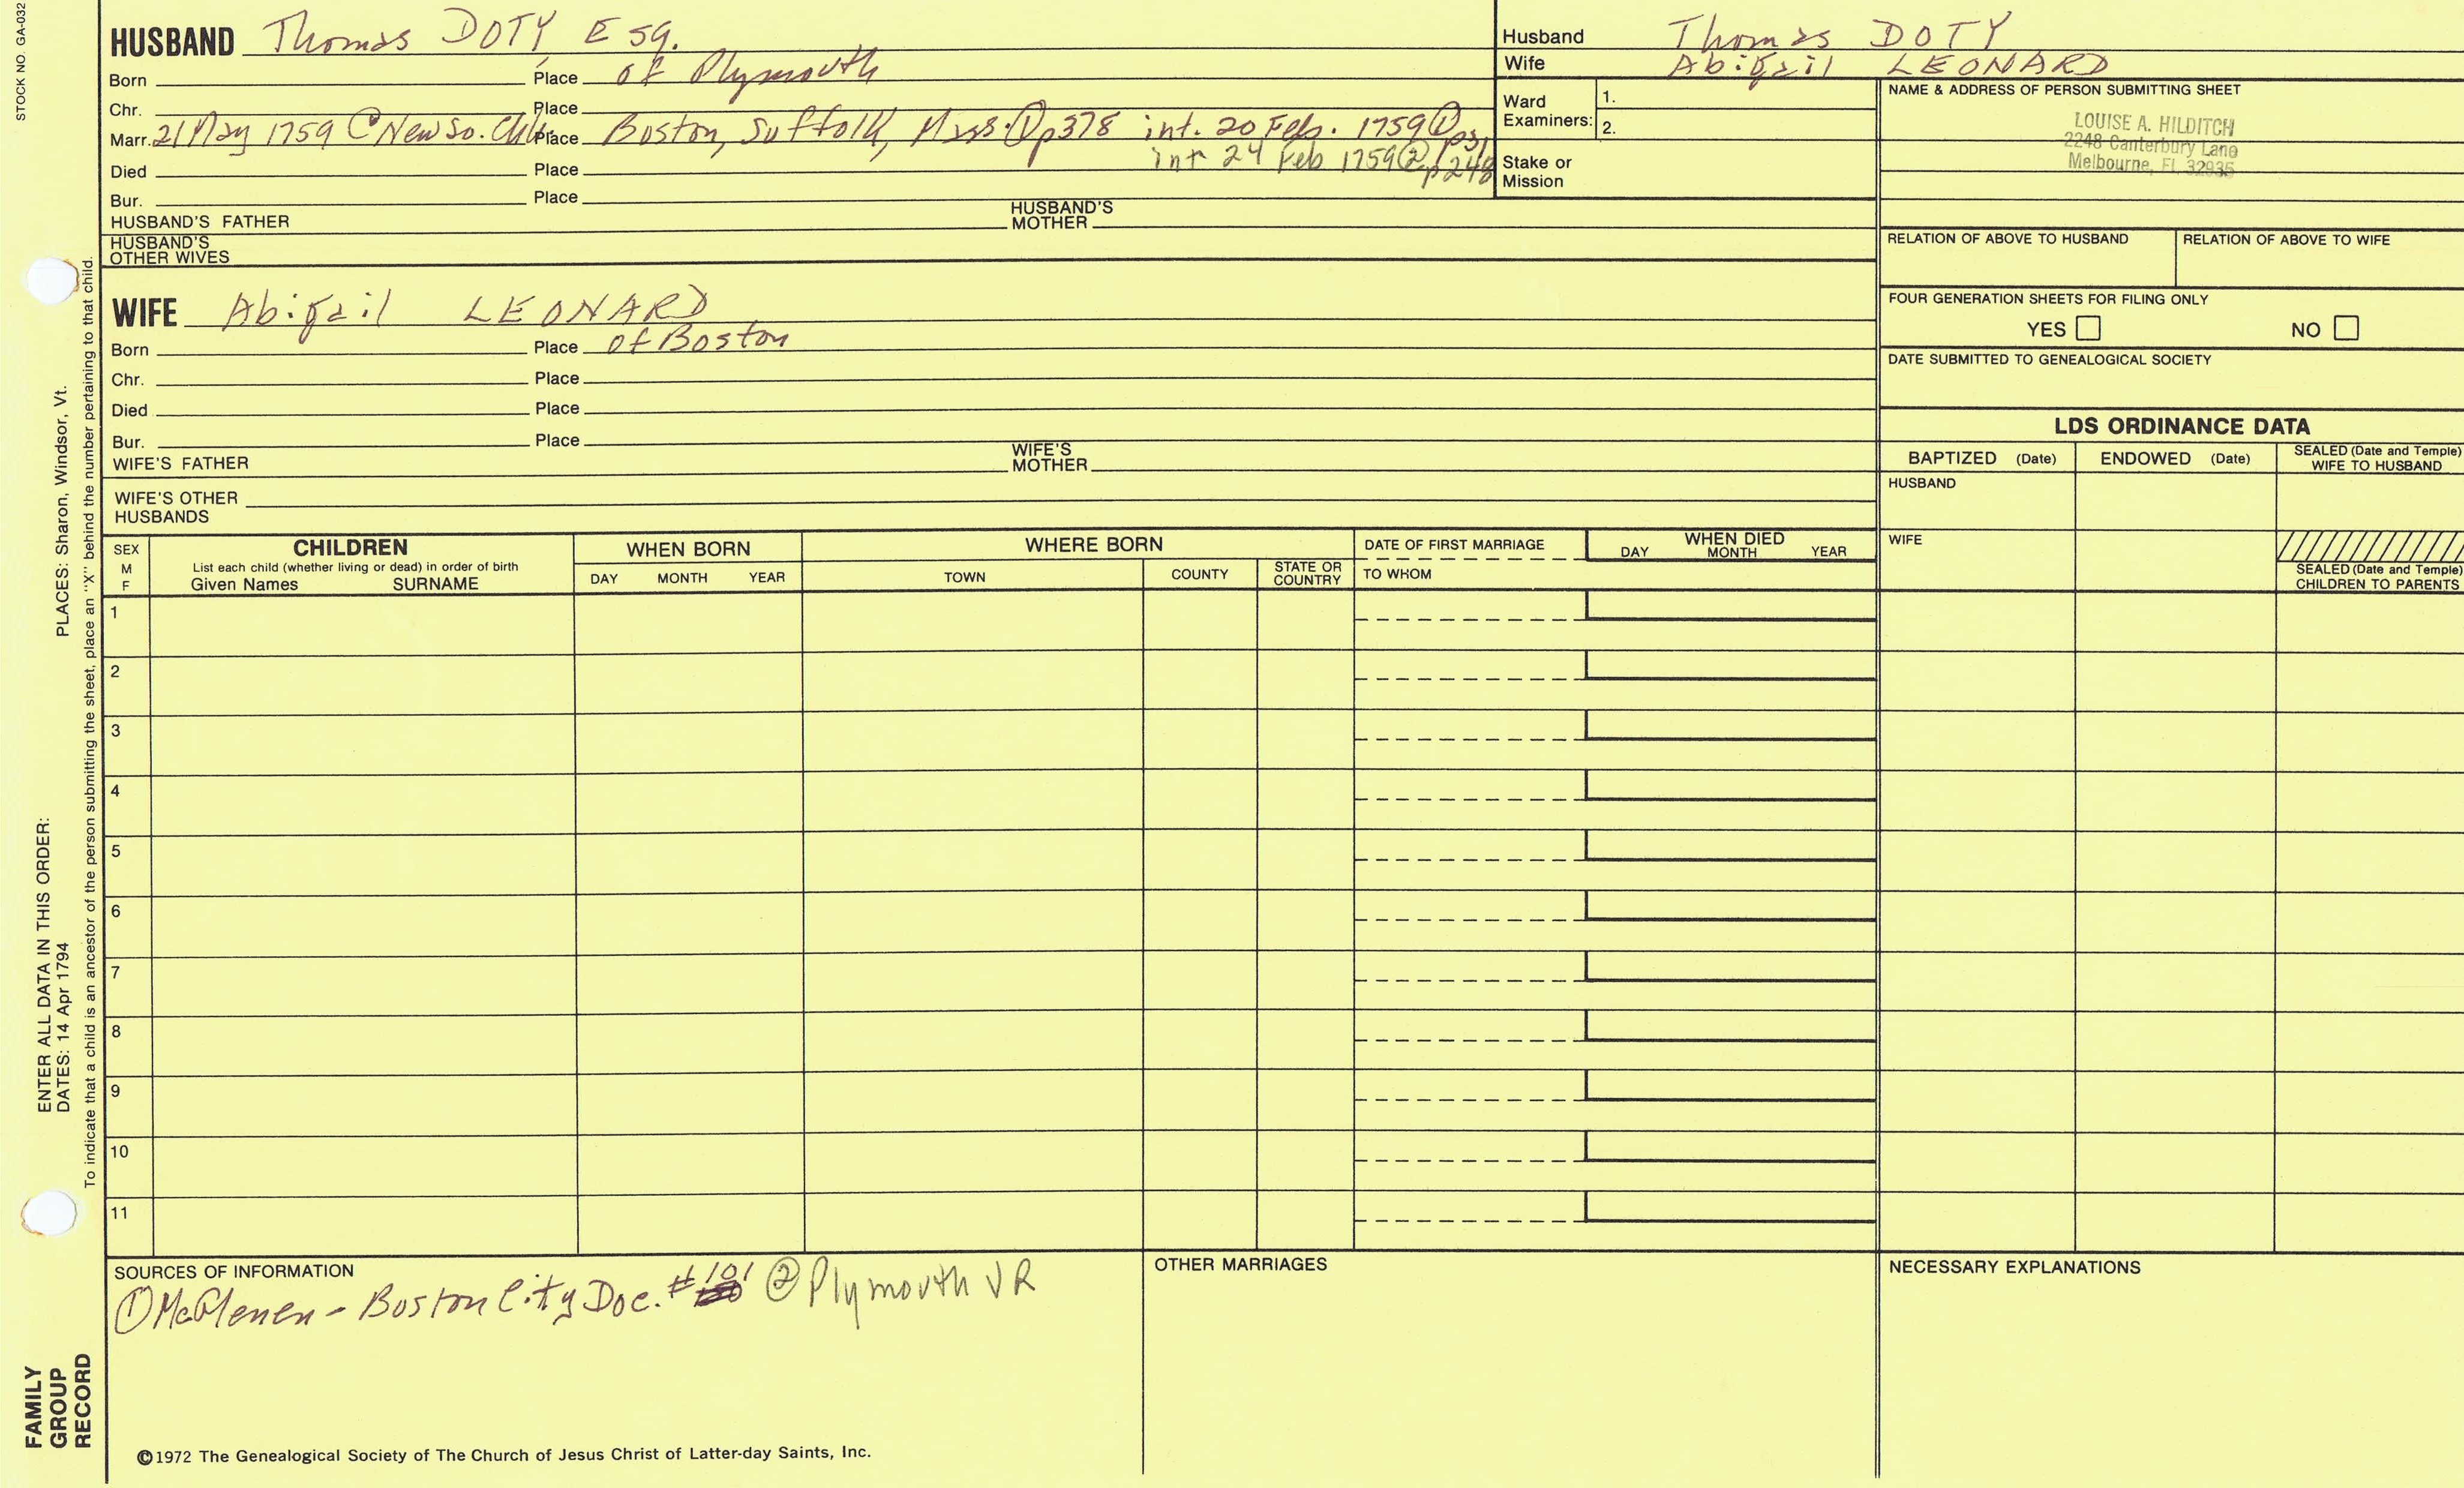 STOCK NO. GA-032
HUSBAND Thomas DOTY Esq.
Born Place of Plymouth
Chr. Place
Marr. 21 May 1759 @ New So. Ch Place Boston, Suffolk, Mass. ① p378 int. 20 Feb. 1759 ① p31
int 24 Feb 1759 ② p248
Died Place
Bur. Place
HUSBAND'S FATHER HUSBAND'S MOTHER
HUSBAND'S OTHER WIVES
WIFE Abigail LEONARD
Born Place of Boston
Chr. Place
Died Place
Bur. Place
WIFE'S FATHER WIFE'S MOTHER
WIFE'S OTHER HUSBANDS
Husband Thomas DOTY
Wife Abigail LEONARD
Ward Examiners: 1.
2.
Stake or Mission
NAME & ADDRESS OF PERSON SUBMITTING SHEET
LOUISE A. HILDITCH
2248 Canterbury Lane
Melbourne, FL 32935
RELATION OF ABOVE TO HUSBAND RELATION OF ABOVE TO WIFE
FOUR GENERATION SHEETS FOR FILING ONLY
YES NO
DATE SUBMITTED TO GENEALOGICAL SOCIETY
LDS ORDINANCE DATA
BAPTIZED (Date) ENDOWED (Date) SEALED (Date and Temple) WIFE TO HUSBAND
HUSBAND
WIFE
SEALED (Date and Temple) CHILDREN TO PARENTS
SEX M F
CHILDREN
List each child (whether living or dead) in order of birth
Given Names SURNAME
WHEN BORN
DAY MONTH YEAR
WHERE BORN
TOWN COUNTY STATE OR COUNTRY
DATE OF FIRST MARRIAGE
TO WHOM
WHEN DIED
DAY MONTH YEAR
1
2
3
4
5
6
7
8
9
10
11
SOURCES OF INFORMATION
① McGlenen - Boston City Doc. #101 ② Plymouth VR
OTHER MARRIAGES
NECESSARY EXPLANATIONS
©1972 The Genealogical Society of The Church of Jesus Christ of Latter-day Saints, Inc.
FAMILY GROUP RECORD
ENTER ALL DATA IN THIS ORDER:
DATES: 14 Apr 1794 PLACES: Sharon, Windsor, Vt.
To indicate that a child is an ancestor of the person submitting the sheet, place an "X" behind the number pertaining to that child.